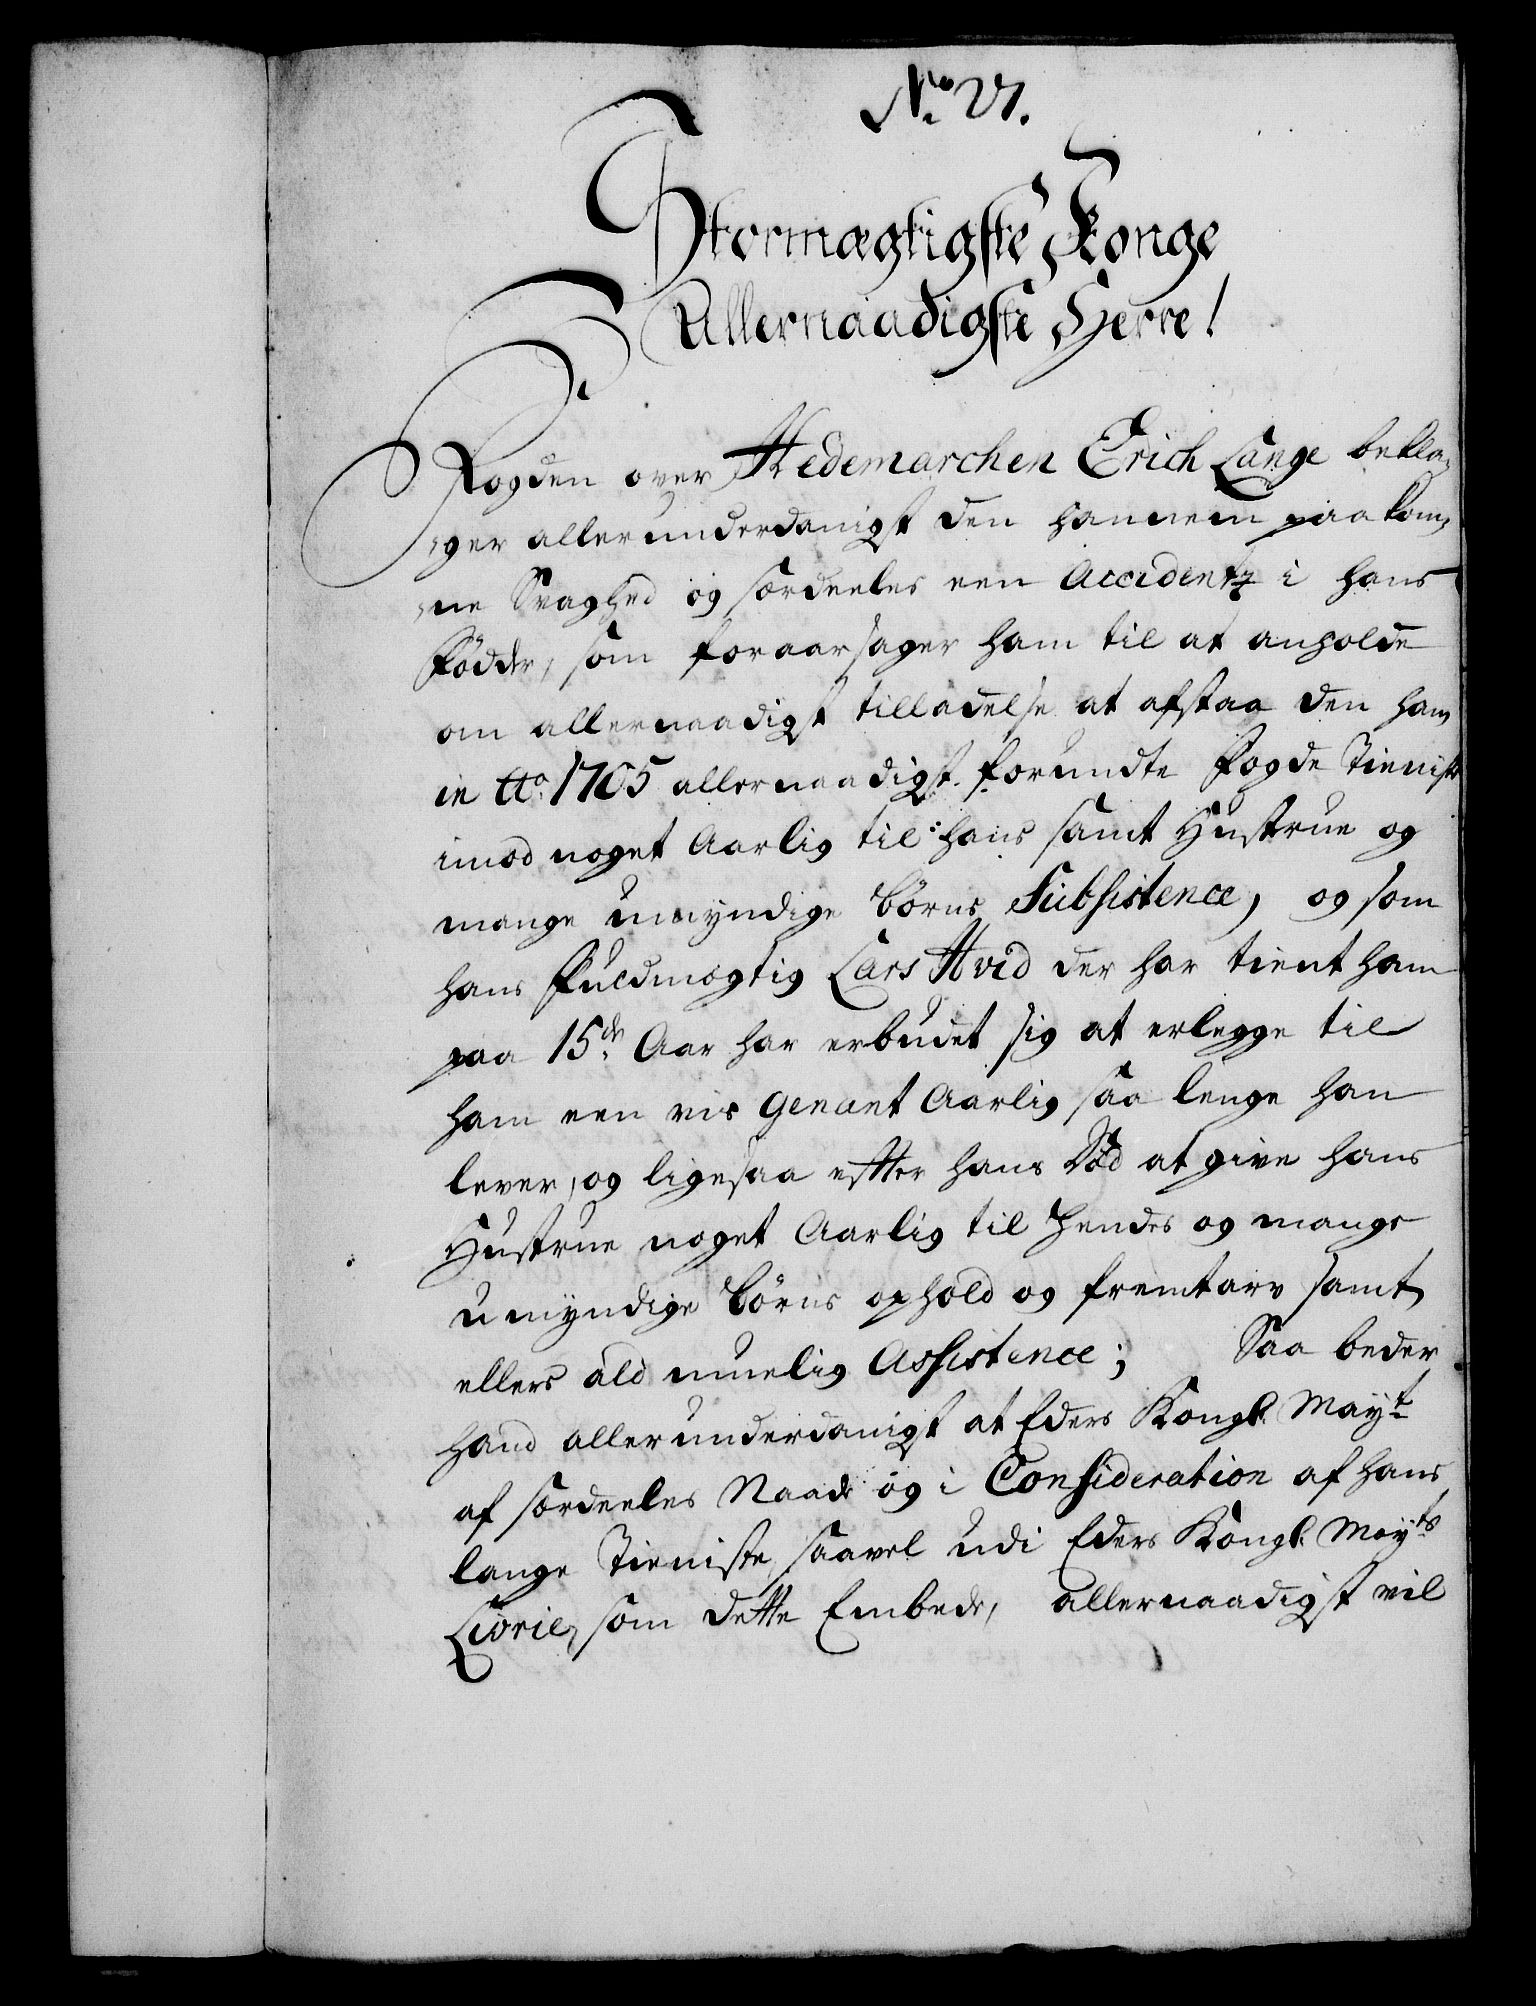 No. 27.
Stormægtigste Konge
Allernaadigste Herre!
Fogden over Hedemarchen Erich Lange bekla-
-ger allerunderdanigst den hannem paa kom-
-ne Svaghed og særdeeles een Accidentz i hans
Födder, som foraarsager ham til at anholde
om allernaadigst tilladelse at afstaa den ham
in Ao. 1705 allernaadigst forundte Fogde Tieniste
imod noget Aarlig til hans samt Hustrue og
mange umyndige börns Subsistence, og som
hans Fuldmægtig Lars Hvid der har tient ham
paa 15de Aar har erbudet sig at erlegge til
ham een vis genant Aarlig saa lenge han
lever, og ligesaa efter hans Död at give hans
Hustrue noget Aarlig til hendes og mange
umyndige börns ophold og fremtarv samt
ellers ald muelig Assistence; Saa beder
hand allerunderdanigst at Eders Kongl. Mayt.
af særdeeles Naade og i Consideration af hans
lange Tieniste, saavel udi Eders Kongl. Mayts
Livrie, som dette Embede, allernaadigst vil